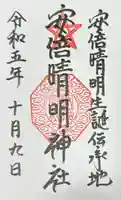 安倍晴明生誕伝承地
安倍晴明神社
令和五年十月九日